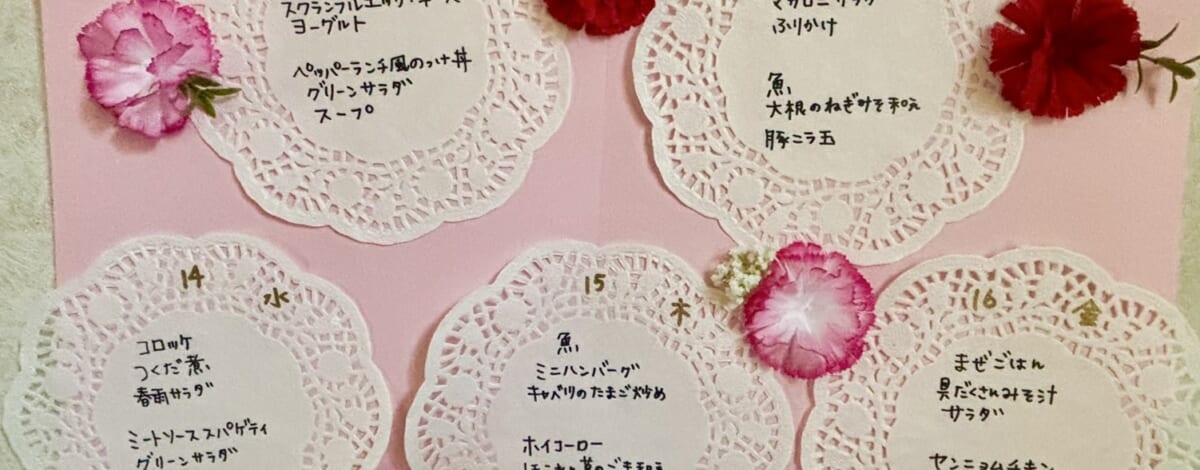 スクランブルエッグ
ヨーグルト
ペッパーランチ風のっけ丼
グリーンサラダ
スープ
マカロニサラダ
ふりかけ
魚
大根のねぎみそ和え
豚ニラ玉
14
水
コロッケ
つくだ煮
春雨サラダ
ミートソーススパゲティ
グリーンサラダ
15
木
魚
ミニハンバーグ
キャベツのたまご炒め
ホイコーロー
16
金
まぜごはん
具だくさんみそ汁
サラダ
ヤンニョムチキン